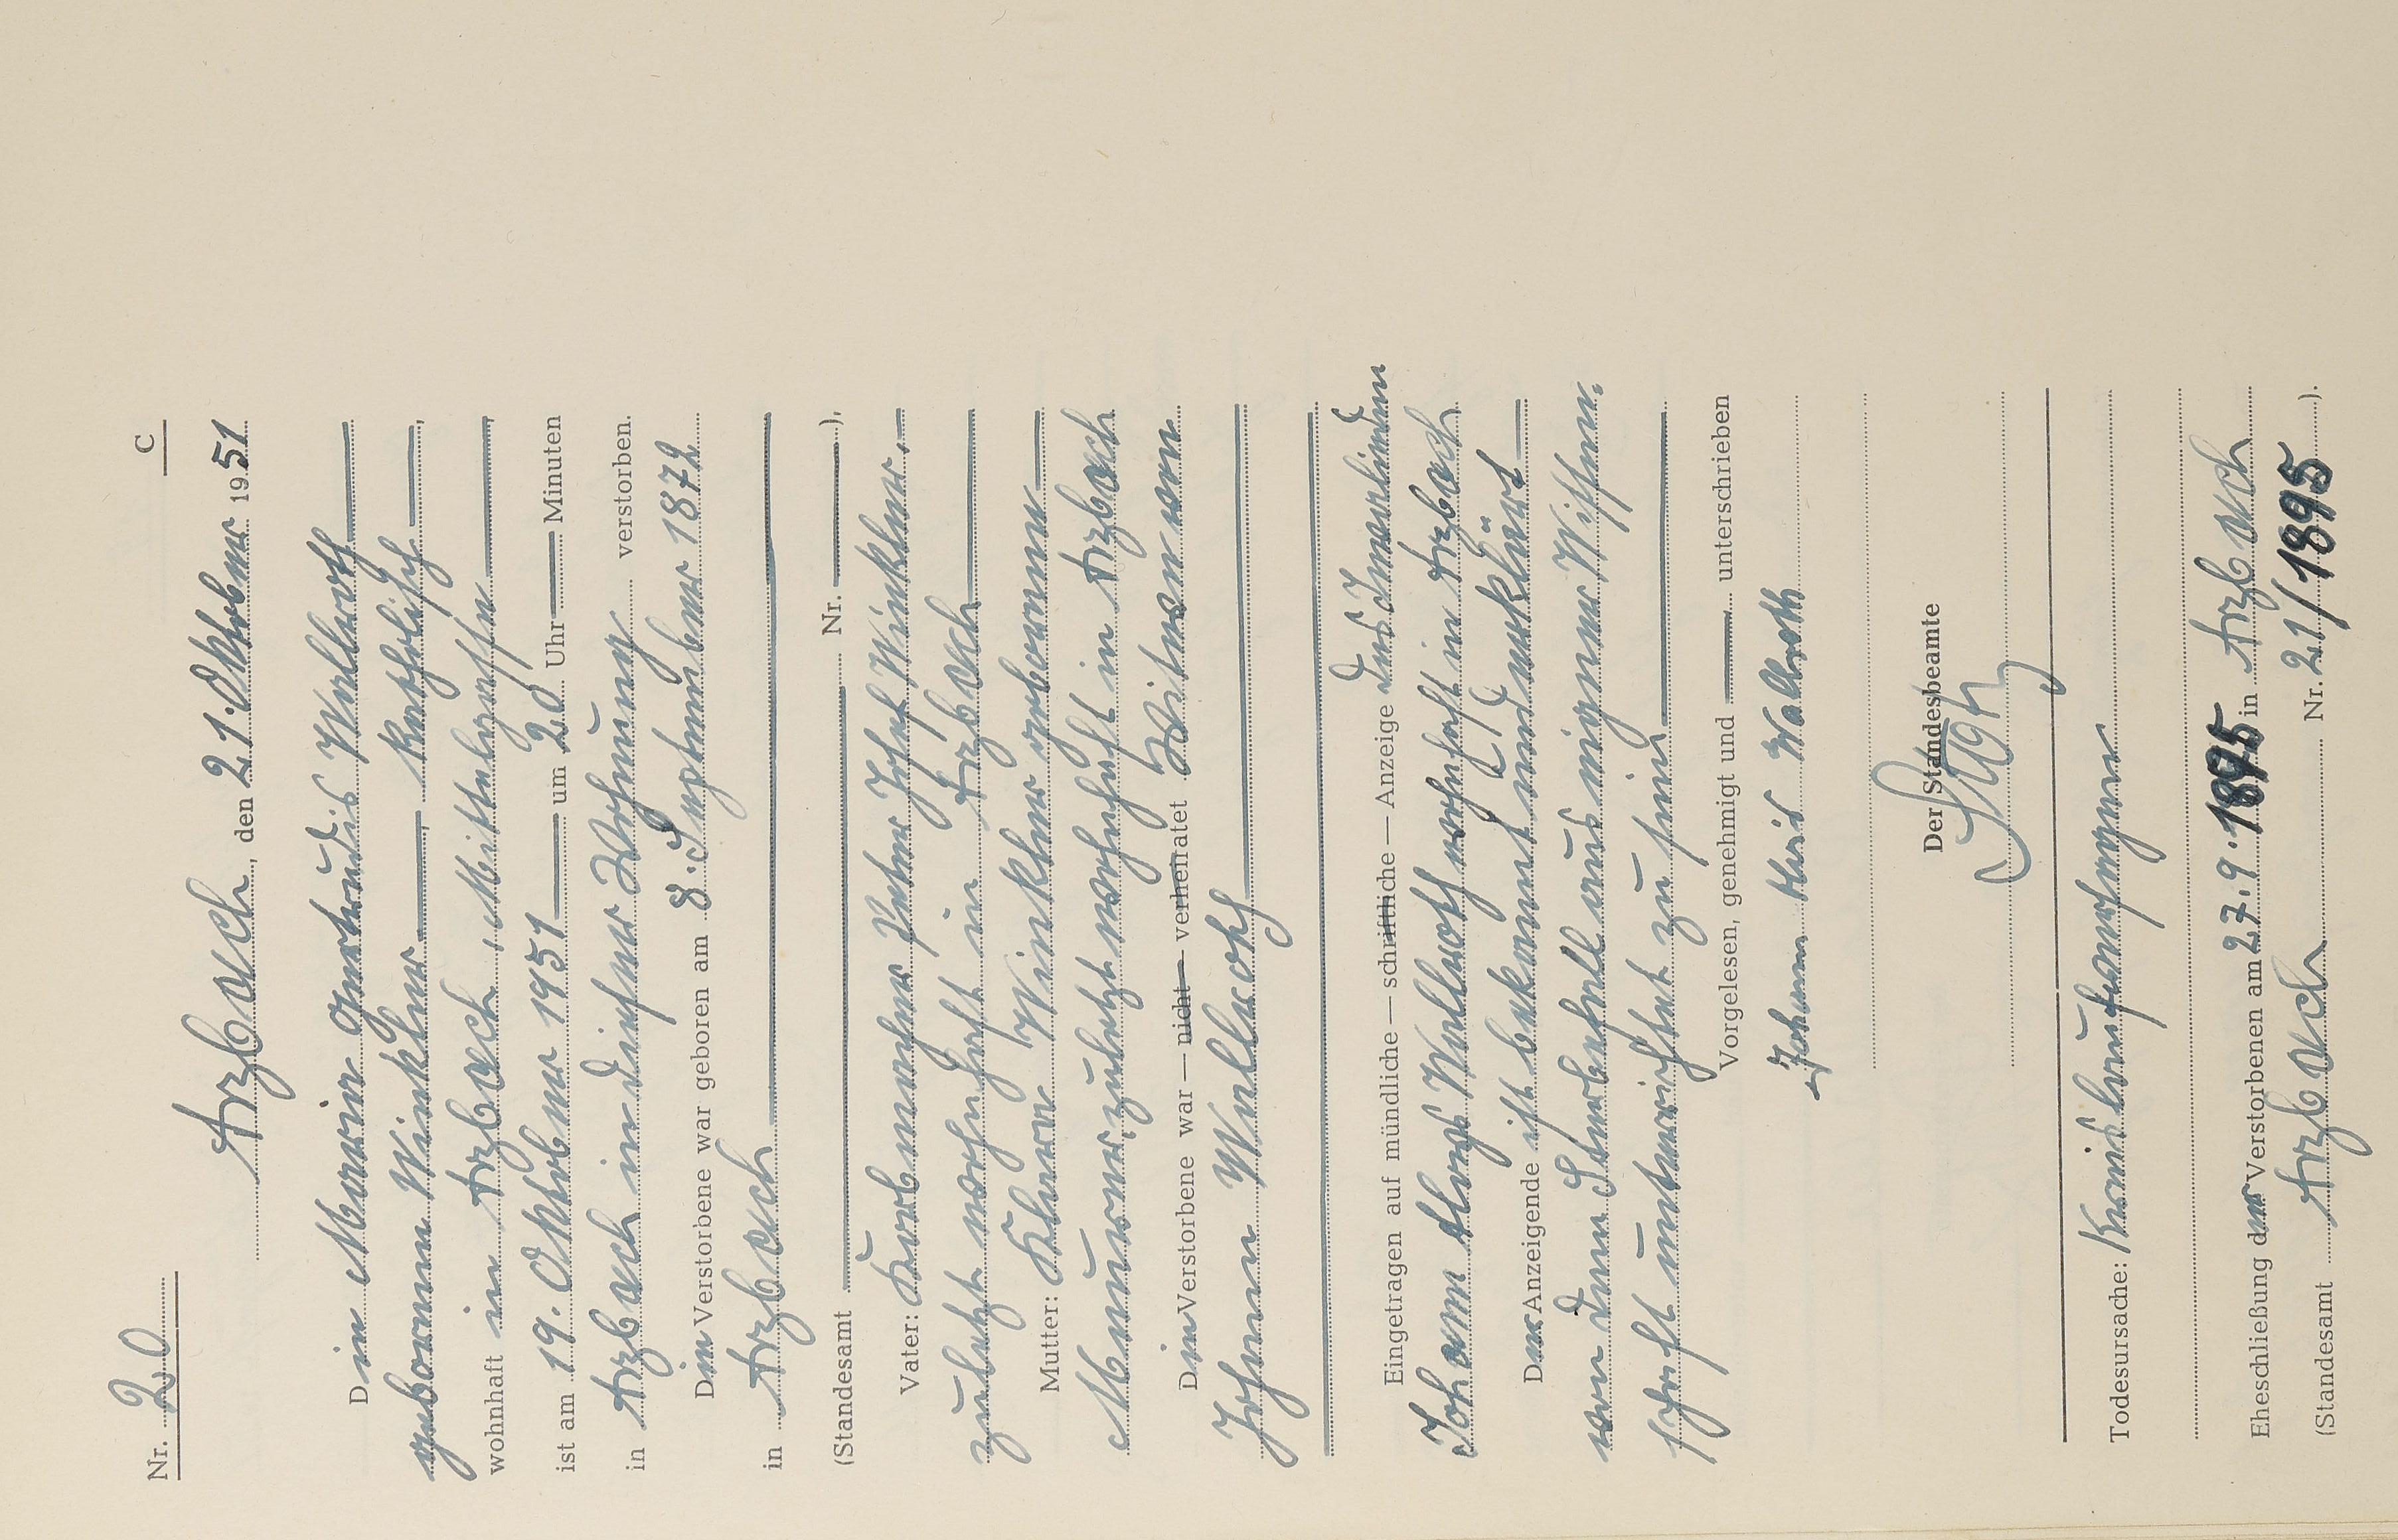 Nr. 20 C
Arzbach, den 21. Oktober 1951
Die Maria Gertrudis Wallroth
geborene Winkler, katholisch,
wohnhaft in Arzbach, Mittelgasse,
ist am 19. Oktober 1951 um 20 Uhr Minuten
in Arzbach in dieser Wohnung verstorben.
Die Verstorbene war geboren am 8. September 1872
in Arzbach
(Standesamt Nr. ),
Vater: Korbmacher Peter Josef Winkler,
zuletzt wohnhaft in Arzbach
Mutter: Klara Winkler geborene
Meurer, zuletzt wohnhaft in Arzbach
Die Verstorbene war — nicht — verheiratet Witwe von
Johann Wallroth
Eingetragen auf mündliche — schriftliche — Anzeige des Invaliden
Johann Alois Wallroth wohnhaft in Arzbach
Der Anzeigende ist bekannt und erklärt
von dem Sterbefall aus eigener Wissen-
schaft unterrichtet zu sein
Vorgelesen, genehmigt und unterschrieben
Johann Alois Wallroth
Der Standesbeamte
Todesursache: Kreislaufversagen
Eheschließung der Verstorbenen am 27.9.1895 in Arzbach
(Standesamt Arzbach Nr. 21/1895 ).